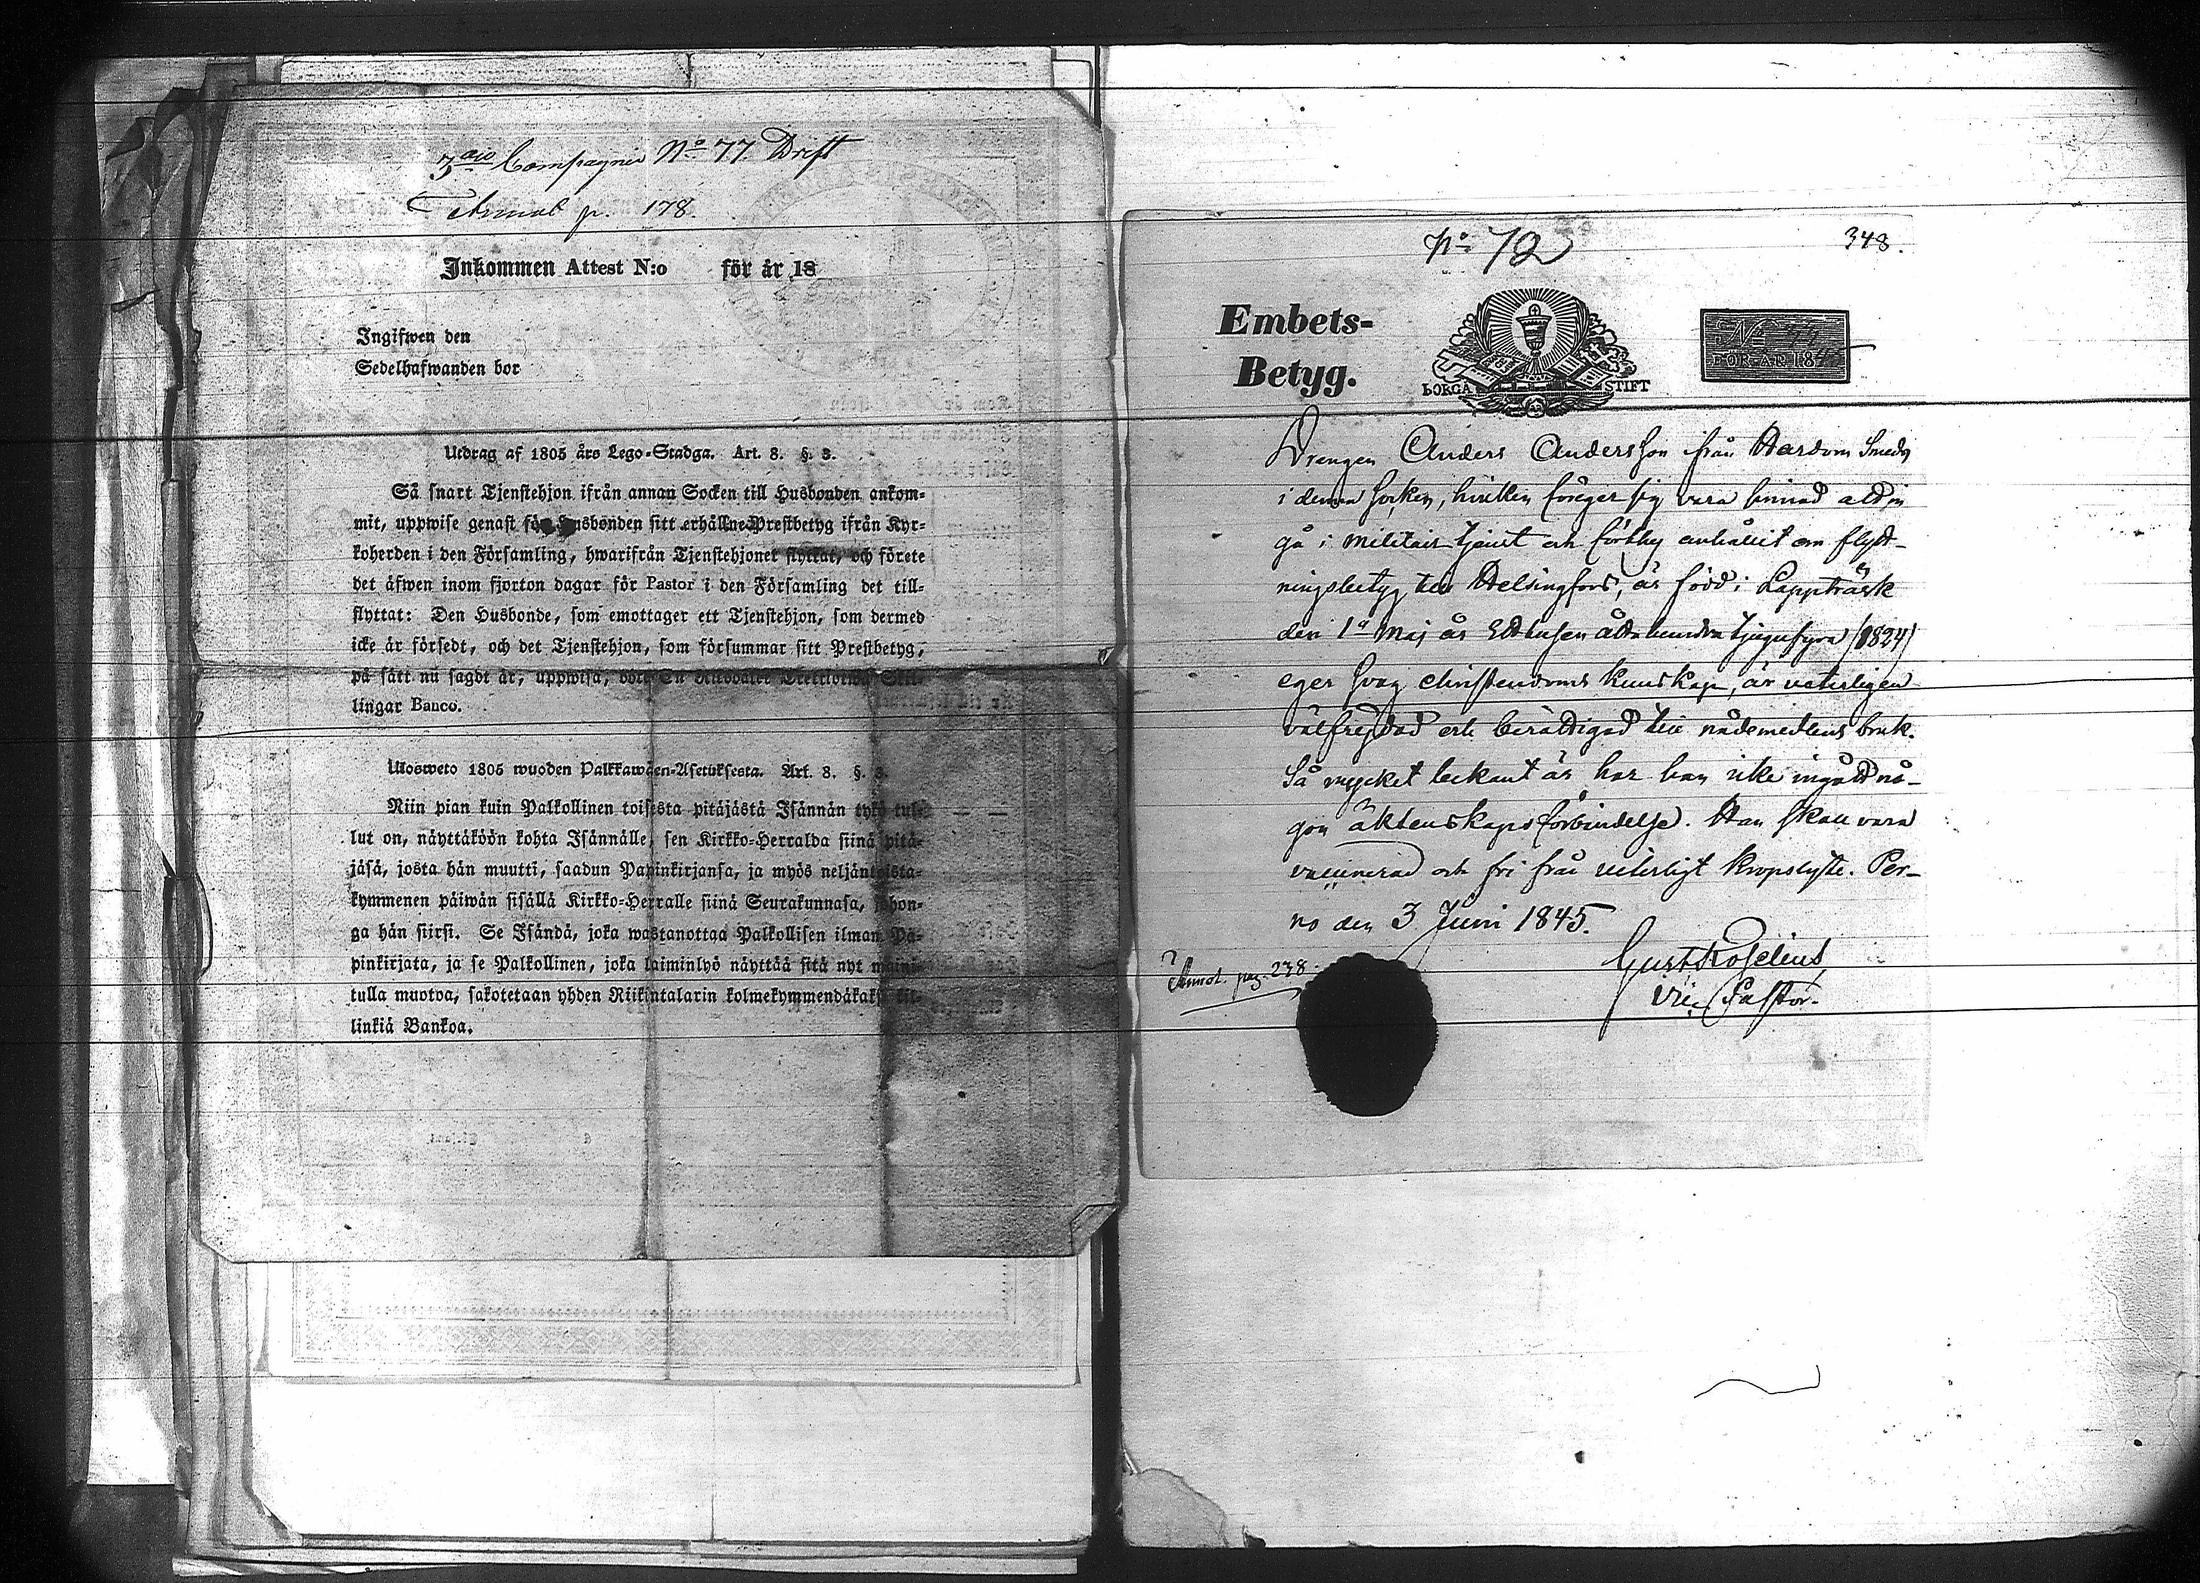 3dje Compagnie No 77. Drift
Annot p. 178.
Inkommen Attest N:o för år 18
Ingifwen den
Sedelhafwanden bor
Utdrag af 1805 års Lego-Stadga. Art. 8. §. 3.
Så snart Tjenstehjon ifrån annan Socken till Husbonden ankom-
mit, uppwise genast för Husbonden sitt erhållne Prestbetyg ifrån Kyr-
koherden i den Församling, hwarifrån Tjenstehjonet flyttat, och förete
det äfwen inom fjorton dagar för Pastor i den Församling det till-
flyttat: Den Husbonde, som emottager ett Tjenstehjon, som dermed
icke är försedt, och det Tjenstehjon, som försummar sitt Prestbetyg,
på sätt nu sagdt är, uppwisa, böte En Riksdaler Trettiotwå Skil-
lingar Banco.
Ulosweto 1805 wuoden Palkkawäen-Asetuksesta. Art. 8. §. 3.
Niin pian kuin Palkollinen toisesta pitäjästä Isännän tykö tul-
lut on, näyttäköön kohta Isännälle sen Kirkko-Herralda siinä pitä-
jäsä, josta hän muutti, saadun Papinkirjansa, ja myös neljäntoista-
kymmenen päiwän sisällä Kirkko-Herralle siinä Seurakunnasa, johon-
ga hän siirsi. Se Isändä, joka wastanottaa Palkollisen ilman Pa-
pinkirjata, ja se Palkollinen, joka laiminlyö näyttää sitä nyt maini-
tulla muotoa, sakotetaan yhden Riikintalarin kolmekymmendäkaksi kil-
linkiä Bankoa.
No 72
348.
Embets-
Betyg.
BORGÅ STIFT
No
FÖR ÅR 18
Drengen Anders Andersson från Hardom Smeds
i denna socken, hvilken föreger sig vara sinnad att in
gå i militair tjenst och fördty anhållit om flytt-
ningsbetyg till Helsingfors, är född i Lappträsk
den 1a Maj år Ettusen åttahundra tjugufyra (1824)
eger svag christendoms kunskap, är veterligen
välfrejdad och berättigad till nådemedlens bruk.
Så mycket bekant är har han icke ingått nå-
gon äktenskapsförbindelse. Han skall vara
vaccinerad och fri från veterligt kropslyte. Per-
no den 3 Juni 1845.
Gust Roselius,
Vice Pastor.
Annot. pag. 238.